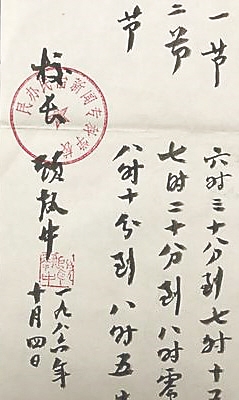 一节 六时三十分到七时十五
二节 七时二十分到八时零
节 八时十分到八时五
校长 顾执中
民办民治新闻专科学校
一九八六年
十月四日